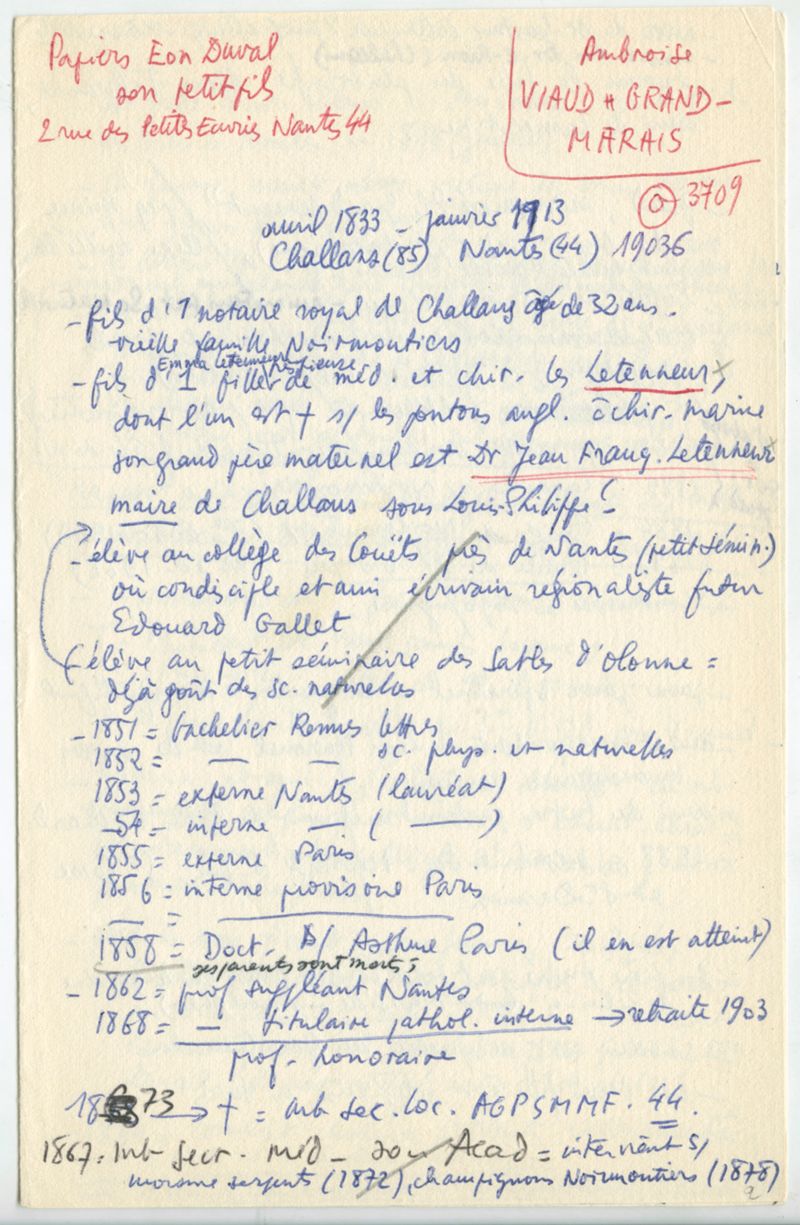 Papiers Eon Duval
son petit fils
2 rue des Petites Ecuries Nantes 44
Ambroise
VIAUD GRAND-
MARAIS
3709
avril 1833 - janvier 1913
Challans (85) Nantes (44) 19036
- fils d'1 notaire royal de Challans âgé de 32 ans.
vieille famille Noirmoutiers
Emma Letenneur religieuse
- fils d'1 fille de méd. et chir. les Letenneur,
dont l'un est † s/ les pontons angl. chir. marine
son grand père maternel est Dr Jean Franç. Letenneur
maire de Challans sous Louis-Philippe
- élève au collège des Couëts près de Nantes (petit sémin.)
où condisciple et ami écrivain régionaliste futur
Edouard Gallet
- élève au petit séminaire des Sables d'Olonne =
déjà goût des sc. naturelles
- 1851 = bachelier Rennes lettres
1852 = — — sc. phys. et naturelles
1853 = externe Nantes (lauréat)
54 = interne — ( — )
1855 = externe Paris
1856 = interne provisoire Paris
— =
1858 = Doct. s/ Asthme Paris (il en est atteint)
ses parents sont morts ;
- 1862 = prof suppléant Nantes
1868 = — titulaire pathol. interne → retraite 1903
prof. honoraire
1873 → † = mb soc. loc. AGPSMMF. 44.
1867 = mb sect. méd - Acad = intervient s/
morsure serpents (1872), champignons Noirmoutiers (1878)